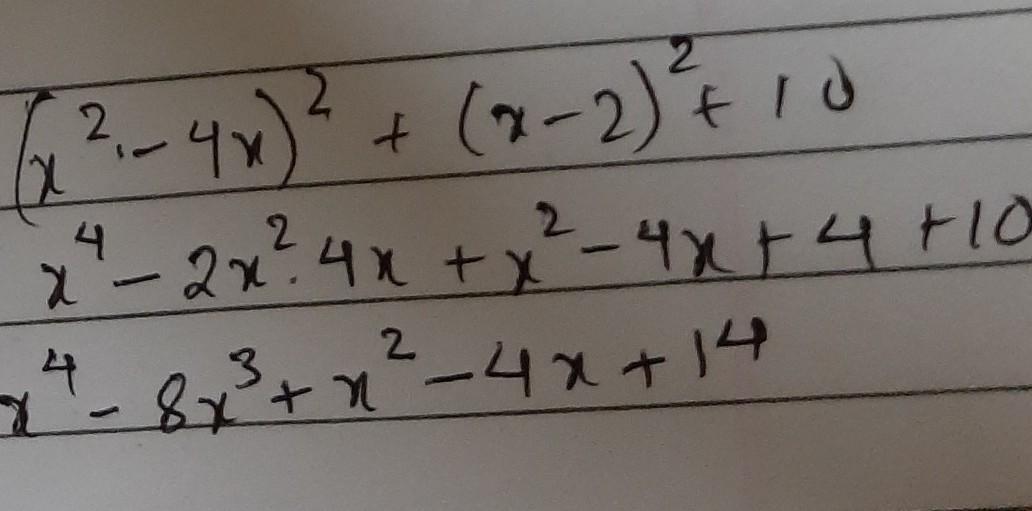 (x² - 4x)² + (x - 2)² + 10
x⁴ - 2x² · 4x + x² - 4x + 4 + 10
x⁴ - 8x³ + x² - 4x + 14